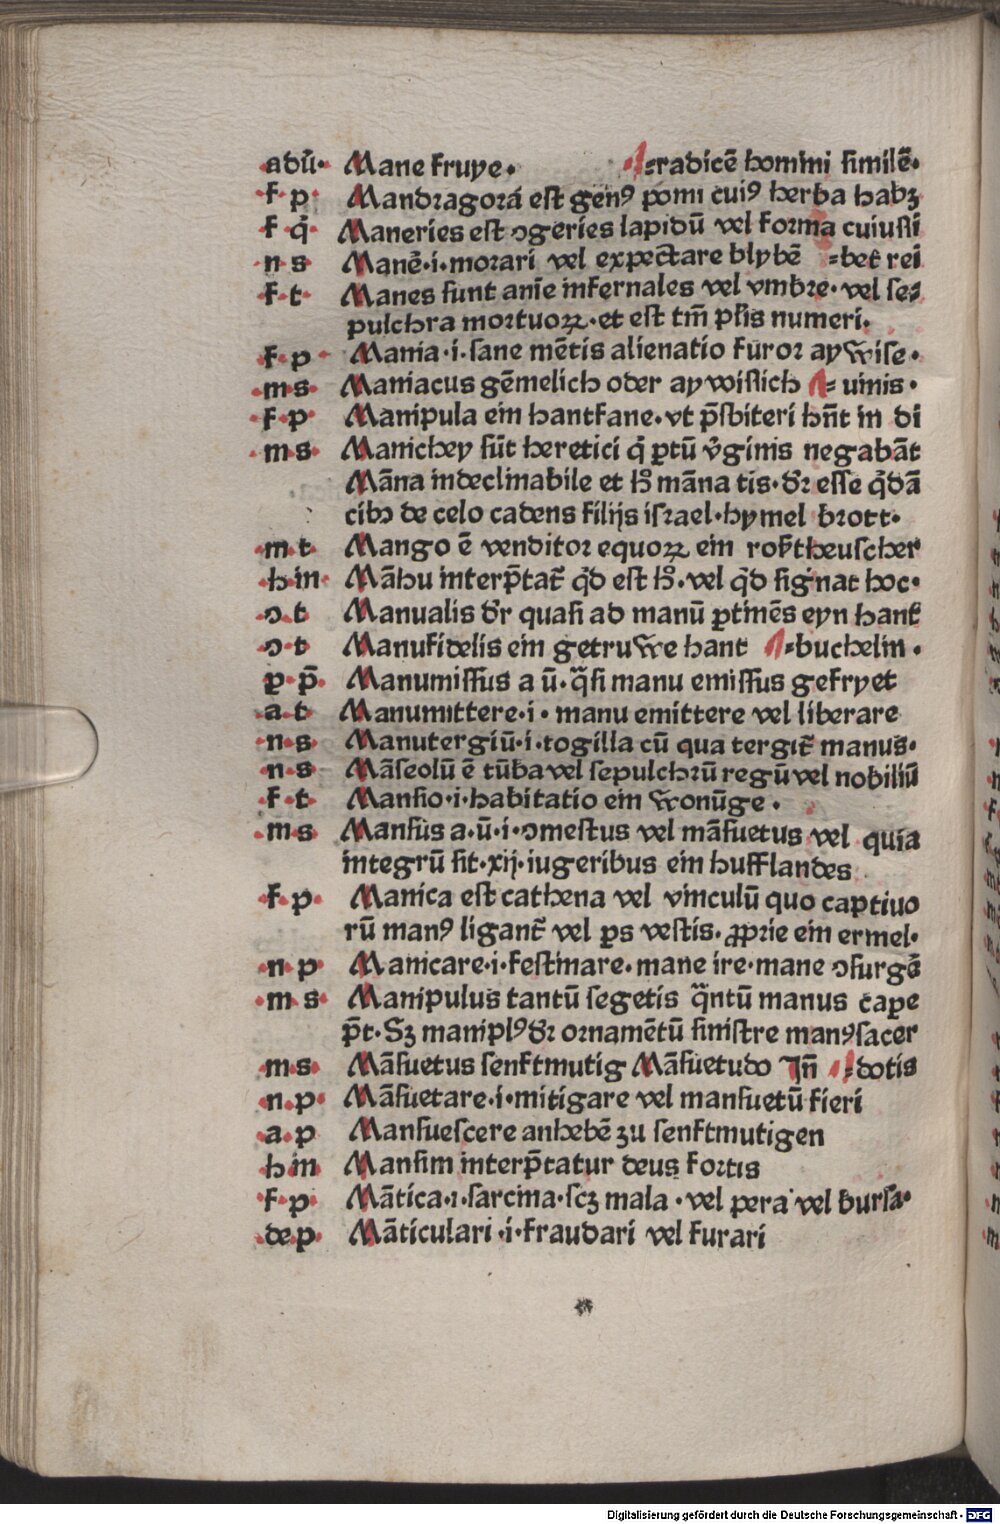 adū· Mane fruye· ·=radicē homini similē·
·f·p· Mandragora est genꝰ pomi cuiꝰ herba habꝫ
f q̄· Maneries est ꝯgeries lapidū vel forma cuiusli
·n·s Manē·i·morari vel expectare blybē =bet rei
·f·t· Manes sunt aīe infernales vel vmbre·vel se=
pulchra mortuoꝝ·et est tm̄ plīs numeri·
·f·p· Mania·i·sane mētis alienatio furor aywise·
·m·s· Maniacus gēmelich oder aywislich = vinis·
·f·p· Manipula ein hantfane·vt p̄sbiteri hn̄t in di
·m·s· Manichey sūt heretici q̄ ꝑtū v̄ginis negabāt
Māna indeclinabile et hͦ māna tis·dr̄ esse q̄dā
cibꝰ de celo cadens filijs israel·hymel brott·
·m·t· Mango ē venditor equoꝝ ein roßtheuscher
·h·in· Māhu interp̄tat᷑ qd̄ est hͦ·vel qd̄ signat hoc·
·ɔ·t Manualis dr̄ quasi ad manū ꝑtinēs eyn hant
·ɔ·t Manufidelis ein getruwe hant =buchelin·
ꝑ·p̄· Manumissus a ū·q̄si manu emissus gefryet
·a·t· Manumittere·i·manu emittere vel liberare
·n·s· Manutergiū·i·togilla cū qua tergit᷑ manus·
·n·s Māseolū ē tūba vel sepulchrū regū vel nobiliū
f·t· Mansio·i·habitatio ein wonūge·
·m·s Mansus a·ū·i·ꝯmestus vel māsuetus vel quia
integrū sit·xij·iugeribus ein hufflandes
·f·p· Manica est cathena vel vinculū quo captiuo
rū manꝰ ligant᷑ vel ꝑs vestis·ꝓprie ein ermel·
·n·p Manicare·i·festinare·mane ire·mane ꝯsurgē
·m·s· Manipulus tantū segetis q̄ntū manus caꝑe
p̄t·Sꝫ maniplꝰ dr̄ ornamētū sinistre manꝰ sacer
·m·s· Māsuetus senftmutig Māsuetudo Jn̄ =dotis
·n·p· Māsuetare·i·mitigare vel mansuetū fieri
·a·p Mansuescere anhebē zu senftmutigen
·h·in Mansim interp̄tatur deus fortis
·f·p· Mātica·i·sarcina·scꝫ mala·vel pera vel bursa·
·de·p· Māticulari·i·fraudari vel furari
Digitalisierung gefördert durch die Deutsche Forschungsgemeinschaft · DFG